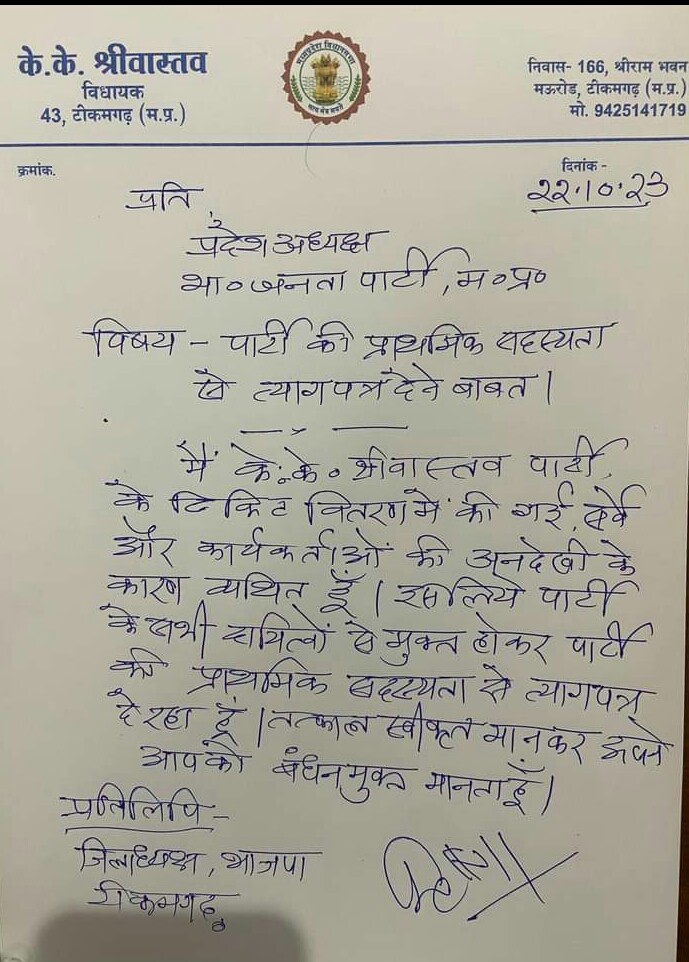 के.के. श्रीवास्तव
विधायक
43, टीकमगढ़ (म.प्र.)
मध्यप्रदेश विधानसभा
सत्यमेव जयते
निवास- 166, श्रीराम भवन
मऊरोड, टीकमगढ़ (म.प्र.)
मो. 9425141719
क्रमांक.
दिनांक -
22.10.23
प्रति,
प्रदेश अध्यक्ष
भा० जनता पार्टी, म०प्र०
विषय - पार्टी की प्राथमिक सदस्यता
से त्यागपत्र देने बाबत।
मैं के.के. श्रीवास्तव पार्टी
के टिकिट वितरण में की गई, सर्वे
और कार्यकर्ताओं की अनदेखी के
कारण व्यथित हूँ। इसलिये पार्टी
के सभी दायित्वों से मुक्त होकर पार्टी
की प्राथमिक सदस्यता से त्यागपत्र
दे रहा हूं। तत्काल स्वीकृत मानकर अपने
आपको बंधनमुक्त मानता हूँ।
प्रतिलिपि -
जिलाध्यक्ष, भाजपा
टीकमगढ़